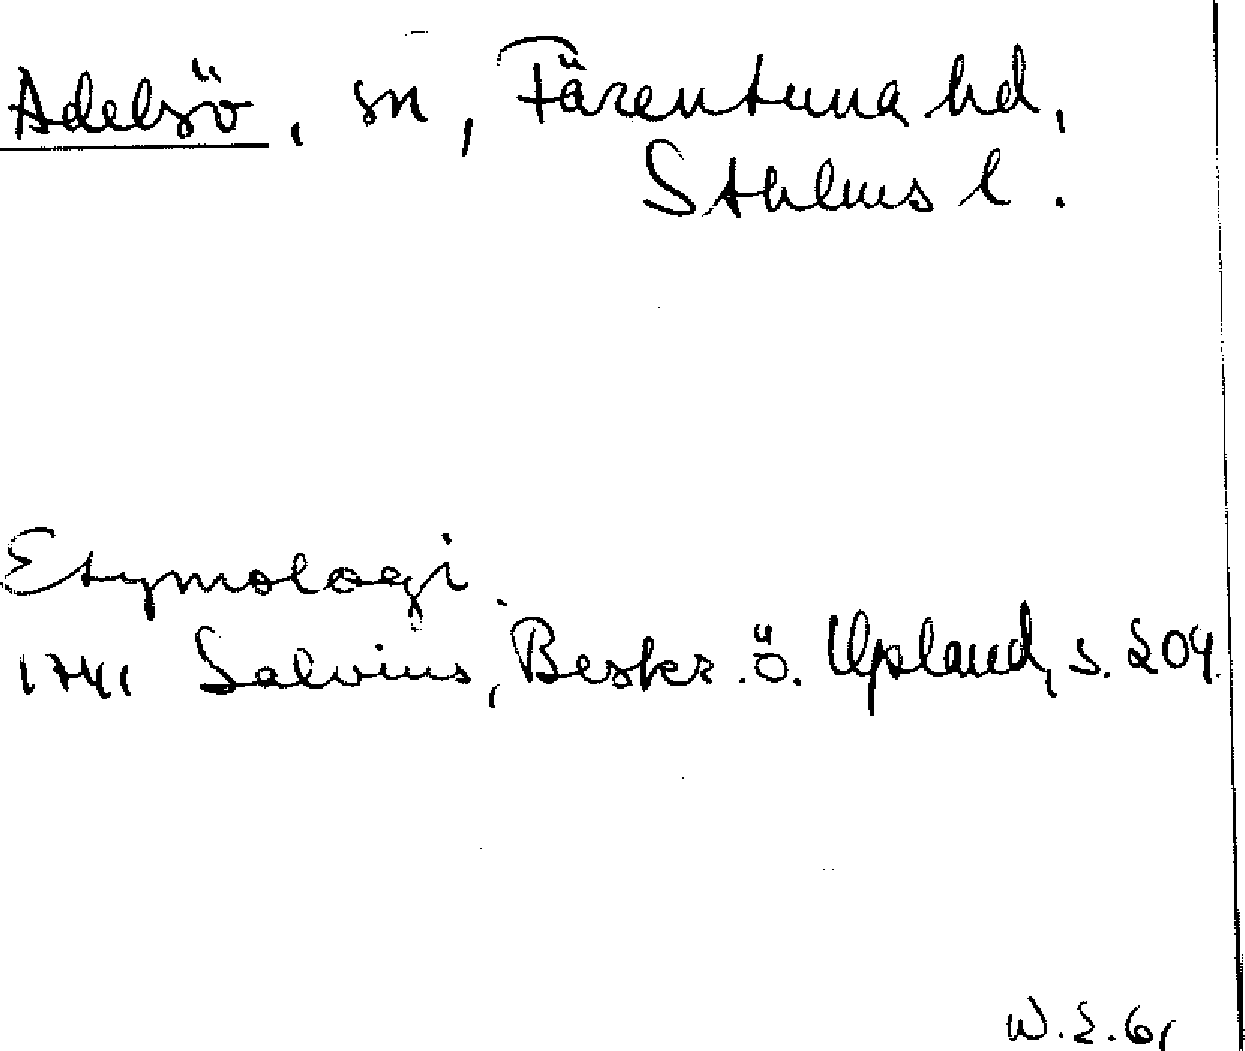 Adelsö, sn, Färentuna hd,
Sthlms l.
Etymologi.
1741 Salvius, Beskr. ö. Upland, s. 209.
W.S. 61